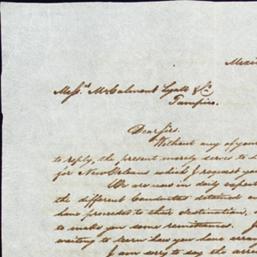 Mexi
Mess.rs McCalmont Lyall & Co.
Tampico.
Dear Sirs.
Without any of your
to reply, the present merely serves to
for New Orleans which I request you
We are now in daily expect
the different Conductas
have proceeded to their destination,
to make you some remittances. I
waiting to learn how you have arran
I am sorry to say the arri